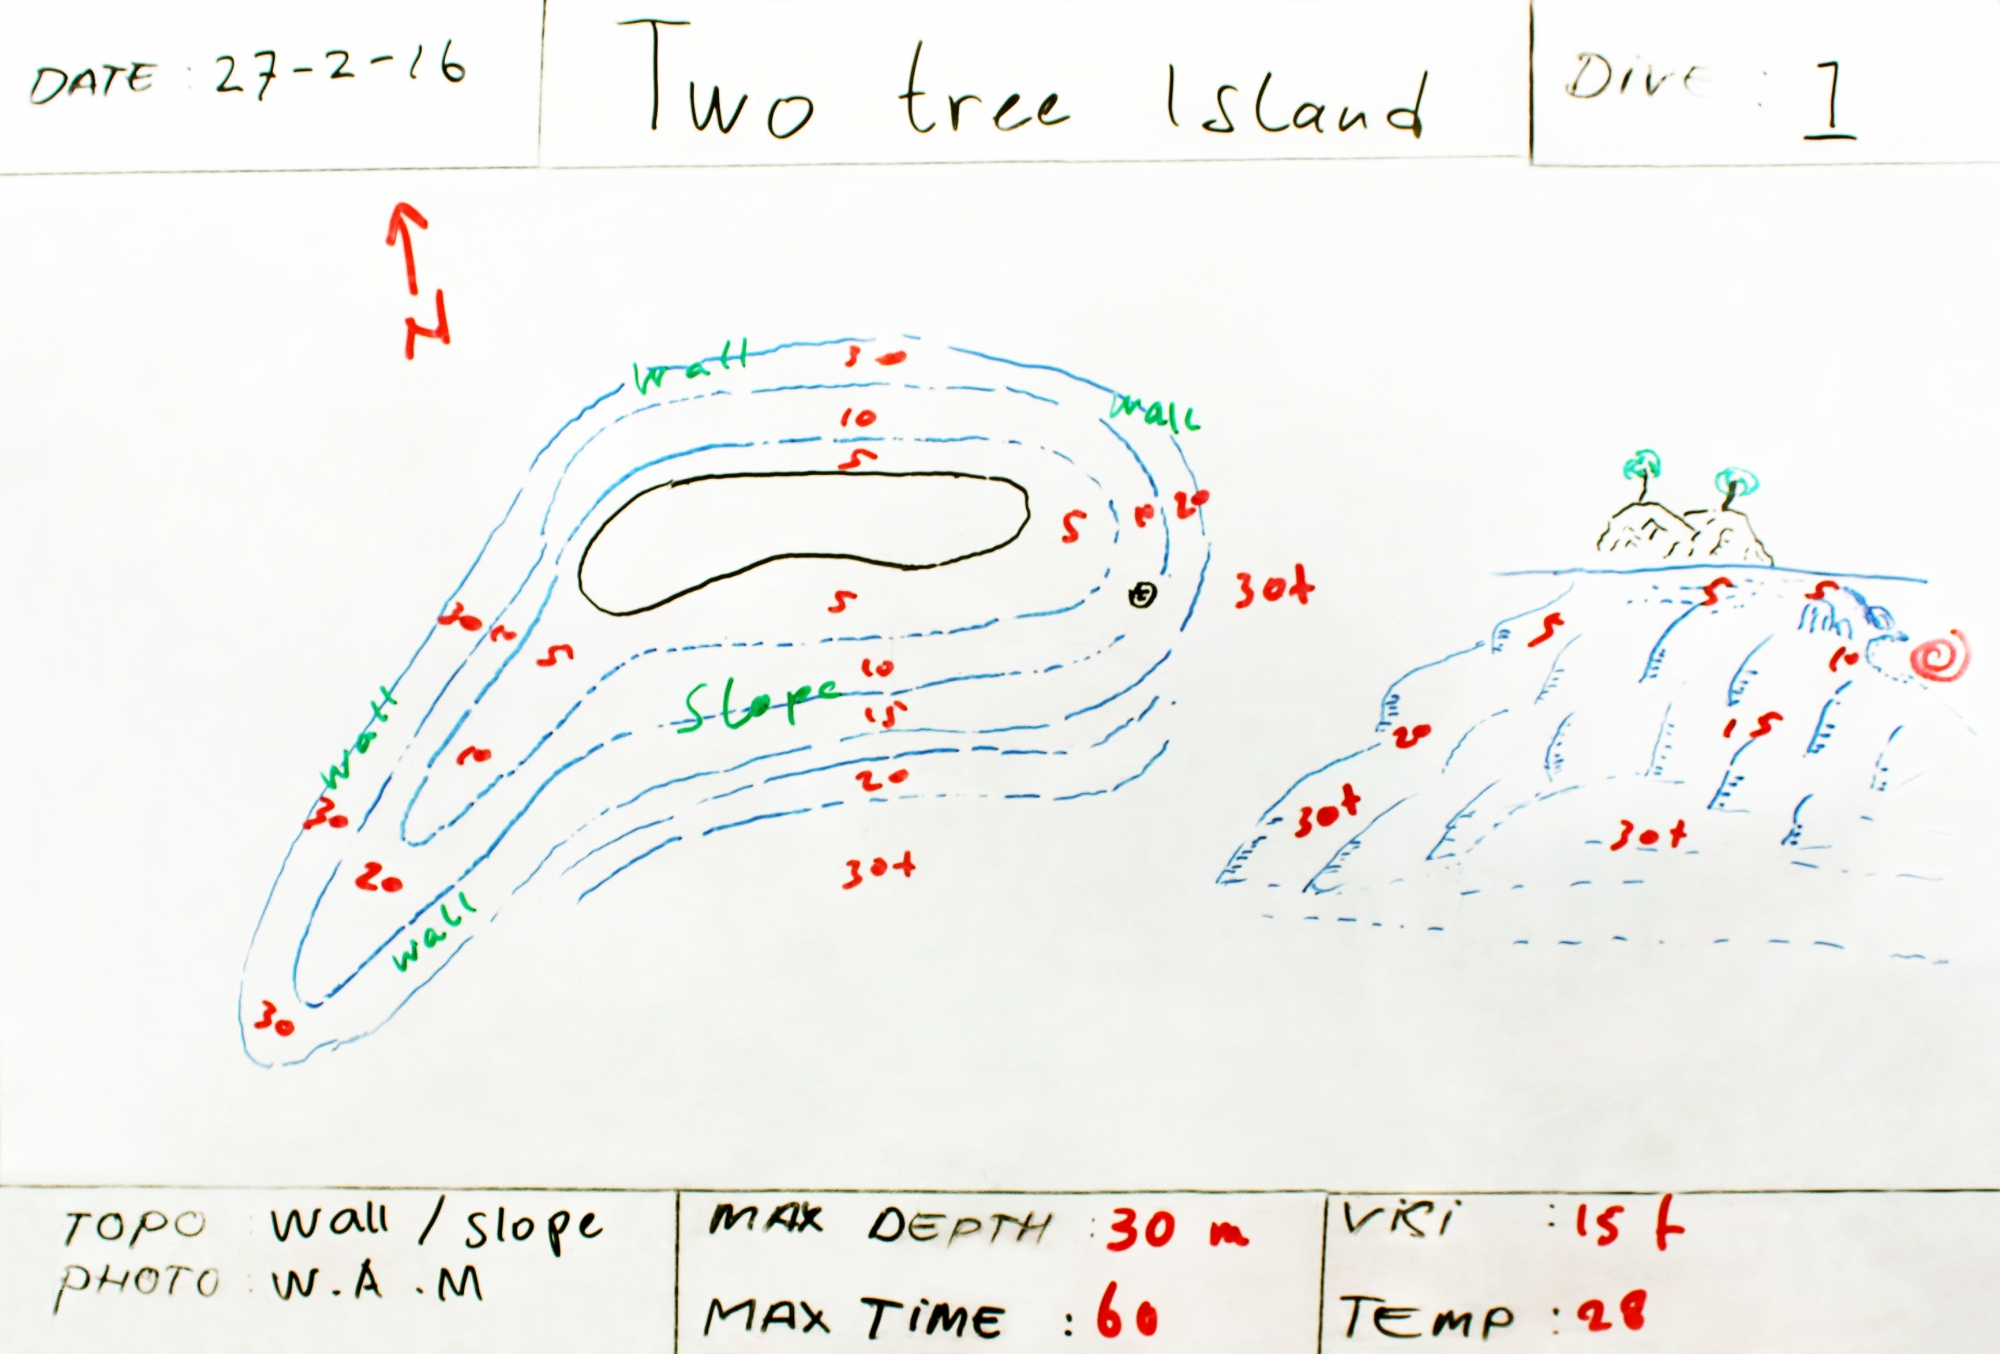 DATE : 27-2-16
Two tree Island
Dive : 1
N
wall
30
wall
10
5
5
20
30+
5
30
5
10
Slope
15
wall
20
30
20
30+
wall
30
5
5
5
10
20
15
30+
30+
TOPO : wall / slope
PHOTO : W.A.M
MAX DEPTH : 30 m
MAX TIME : 60
ViSi : 15 +
TEMP : 28